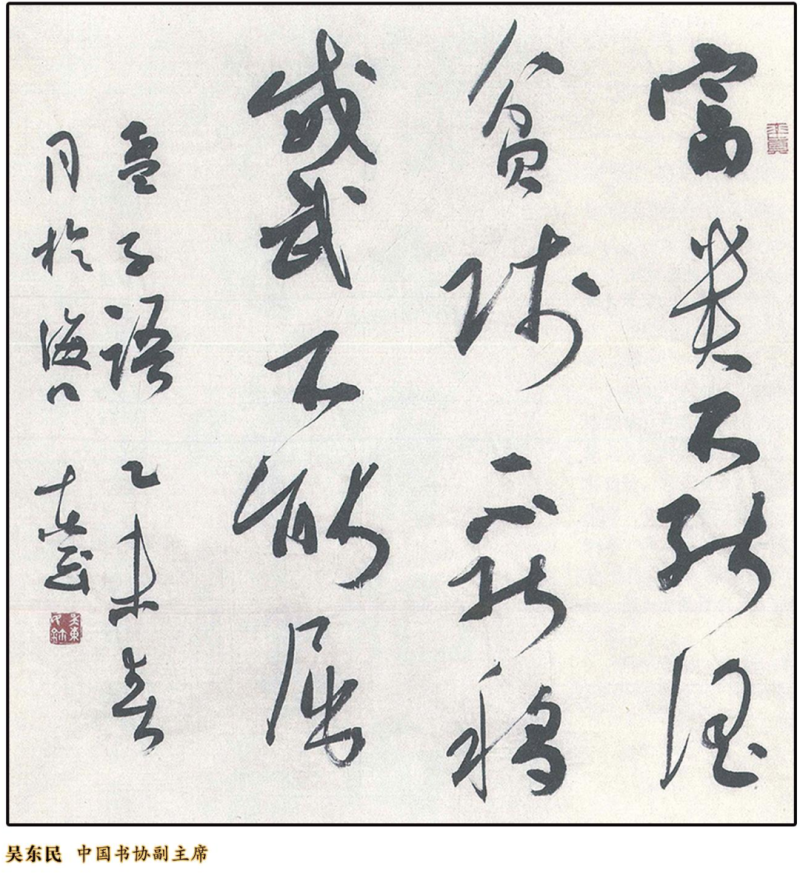 富貴不能淫
貧賤不能移
威武不能屈
孟子語 乙未春
月於海口 東民
吴东民 中国书协副主席